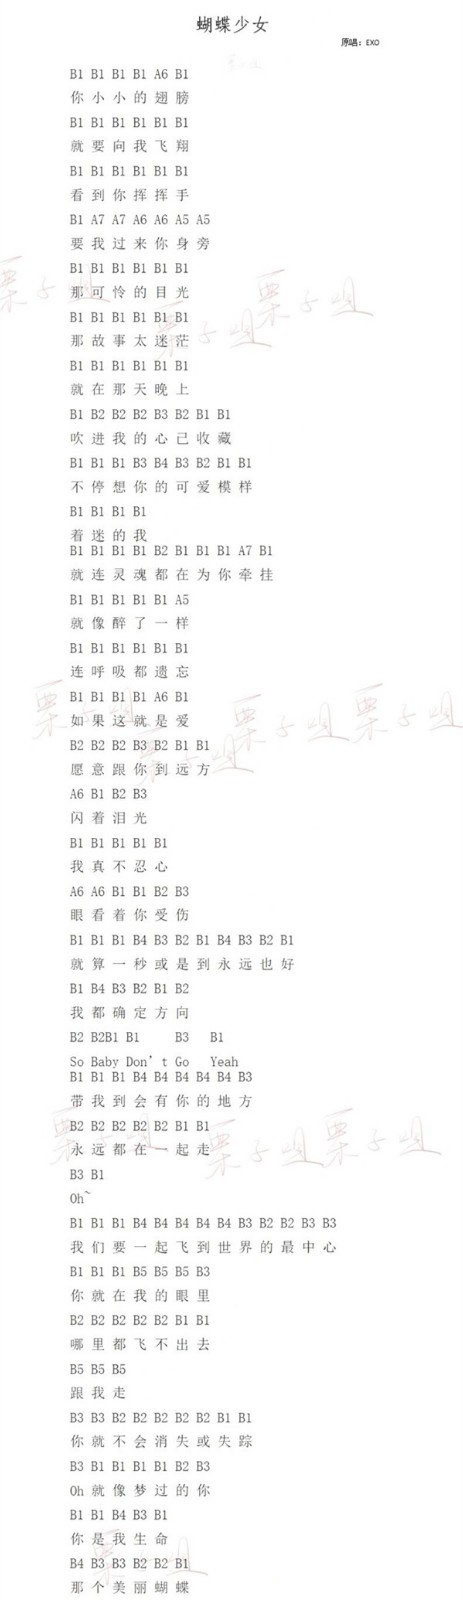 蝴蝶少女
原唱：EXO
B1 B1 B1 B1 A6 B1
你小小的翅膀
B1 B1 B1 B1 B1 B1
就要向我飞翔
B1 B1 B1 B1 B1 B1
看到你挥挥手
B1 A7 A7 A6 A6 A5 A5
要我过来你身旁
B1 B1 B1 B1 B1 B1
那可怜的目光
B1 B1 B1 B1 B1 B1
那故事太迷茫
B1 B1 B1 B1 B1 B1
就在那天晚上
B1 B2 B2 B2 B3 B2 B1 B1
吹进我的心已收藏
B1 B1 B1 B3 B4 B3 B2 B1 B1
不停想你的可爱模样
B1 B1 B1 B1
着迷的我
B1 B1 B1 B1 B2 B1 B1 B1 A7 B1
就连灵魂都在为你牵挂
B1 B1 B1 B1 B1 A5
就像醉了一样
B1 B1 B1 B1 B1 B1
连呼吸都遗忘
B1 B1 B1 B1 A6 B1
如果这就是爱
B2 B2 B2 B3 B2 B1 B1
愿意跟你到远方
A6 B1 B2 B3
闪着泪光
B1 B1 B1 B1 B1
我真不忍心
A6 A6 B1 B1 B2 B3
眼看着你受伤
B1 B1 B1 B4 B3 B2 B1 B4 B3 B2 B1
就算一秒或是到永远也好
B1 B4 B3 B2 B1 B2
我都确定方向
B2 B2B1 B1 B3 B1
So Baby Don't Go Yeah
B1 B1 B1 B4 B4 B4 B4 B4 B3
带我到会有你的地方
B2 B2 B2 B2 B2 B1 B1
永远都在一起走
B3 B1
Oh~
B1 B1 B1 B4 B4 B4 B4 B4 B3 B2 B2 B3 B3
我们要一起飞到世界的最中心
B1 B1 B1 B5 B5 B5 B3
你就在我的眼里
B2 B2 B2 B2 B2 B1 B1
哪里都飞不出去
B5 B5 B5
跟我走
B3 B3 B2 B2 B2 B2 B2 B1 B1
你就不会消失或失踪
B3 B1 B1 B1 B1 B2 B3
Oh 就像梦过的你
B1 B1 B4 B3 B1
你是我生命
B4 B3 B3 B2 B2 B1
那个美丽蝴蝶
栗子姐
栗子姐
栗子姐
栗子姐
栗子姐
栗子姐
栗子姐
栗子姐
栗子姐
栗子姐
栗子姐